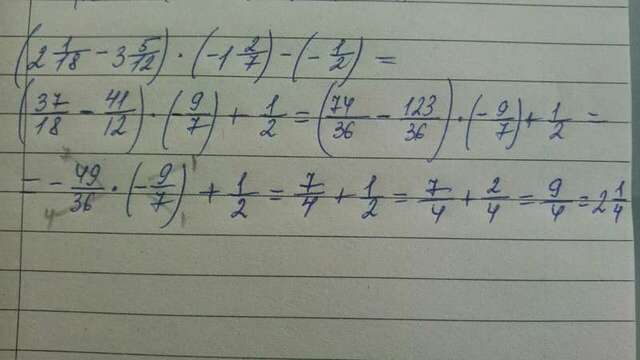 (2 1/18 − 3 5/12) · (−1 2/7) − (−1/2) =
(37/18 − 41/12) · (−9/7) + 1/2 = (74/36 − 123/36) · (−9/7) + 1/2 =
= −49/36 · (−9/7) + 1/2 = 7/4 + 1/2 = 7/4 + 2/4 = 9/4 = 2 1/4